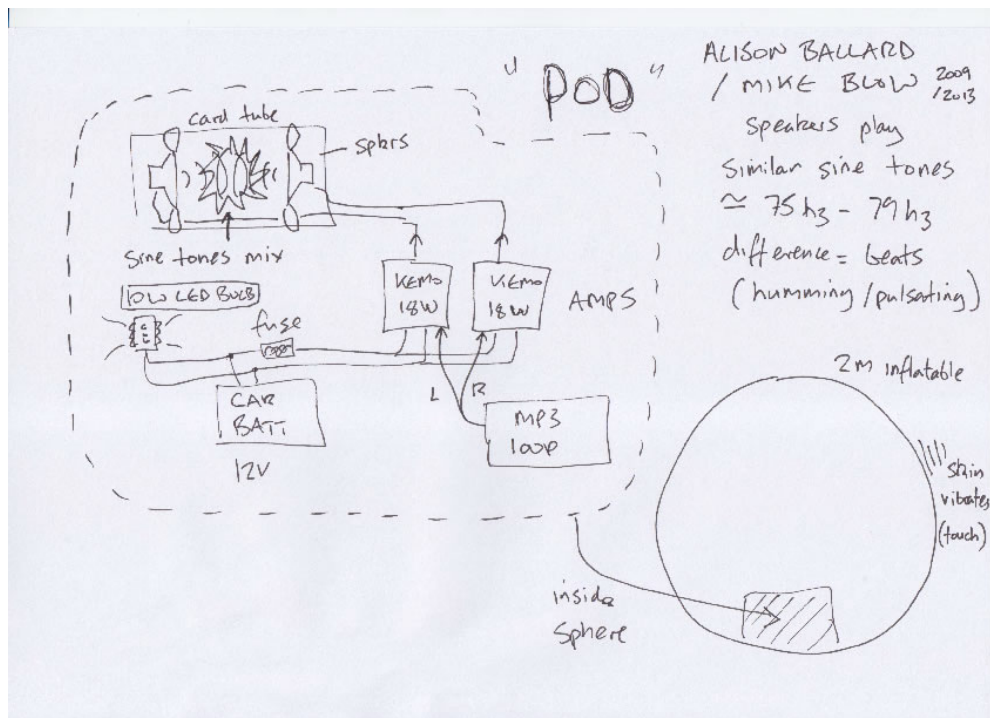 " POD "
ALISON BALLARD
/ MIKE BLOW 2009
/2013
speakers play
similar sine tones
≃ 75hz - 79hz
difference = beats
(humming / pulsating)
card tube
spkrs
sine tones mix
10W LED BULB
fuse
KEMO
18W
KEMO
18W
AMPS
L
R
CAR
BATT
12V
MP3
loop
2m inflatable
skin
vibrates
(touch)
inside
sphere